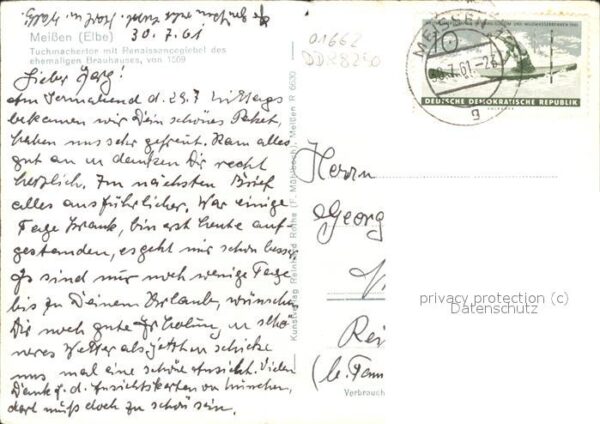 Meißen (Elbe)
30. 7. 61
Tuchmachertor mit Renaissancegiebel des
ehemaligen Brauhauses, von 1569
01662
DDR8250
MEISSEN
10
30.7.61
g
DEUTSCHE DEMOKRATISCHE REPUBLIK
Lieber Georg!
Am Sonnabend d. 29.7 Mittags
bekamen wir Dein schönes Paket,
haben uns sehr gefreut. Kam alles
gut an u danken Dir recht
herzlich. Im nächsten Brief
alles ausführlicher. War einige
Tage krank, bin erst heute auf
gestanden, es geht mir schon besser
Es sind nur noch wenige Tage
bis zu Deinem Urlaube, wünschen
Dir noch gute Erholung, u schö
neres Wetter als jetzt, schicke
uns mal eine schöne Ansicht. Vielen
Dank f. d. Ansichtskarten von München,
dort muß doch zu schön sein.
Kunstverlag Reinhard Rothe Meißen R 6630
Herrn
Georg
Rei
(b. Tann
Verbrauch
privacy protection (c)
Datenschutz